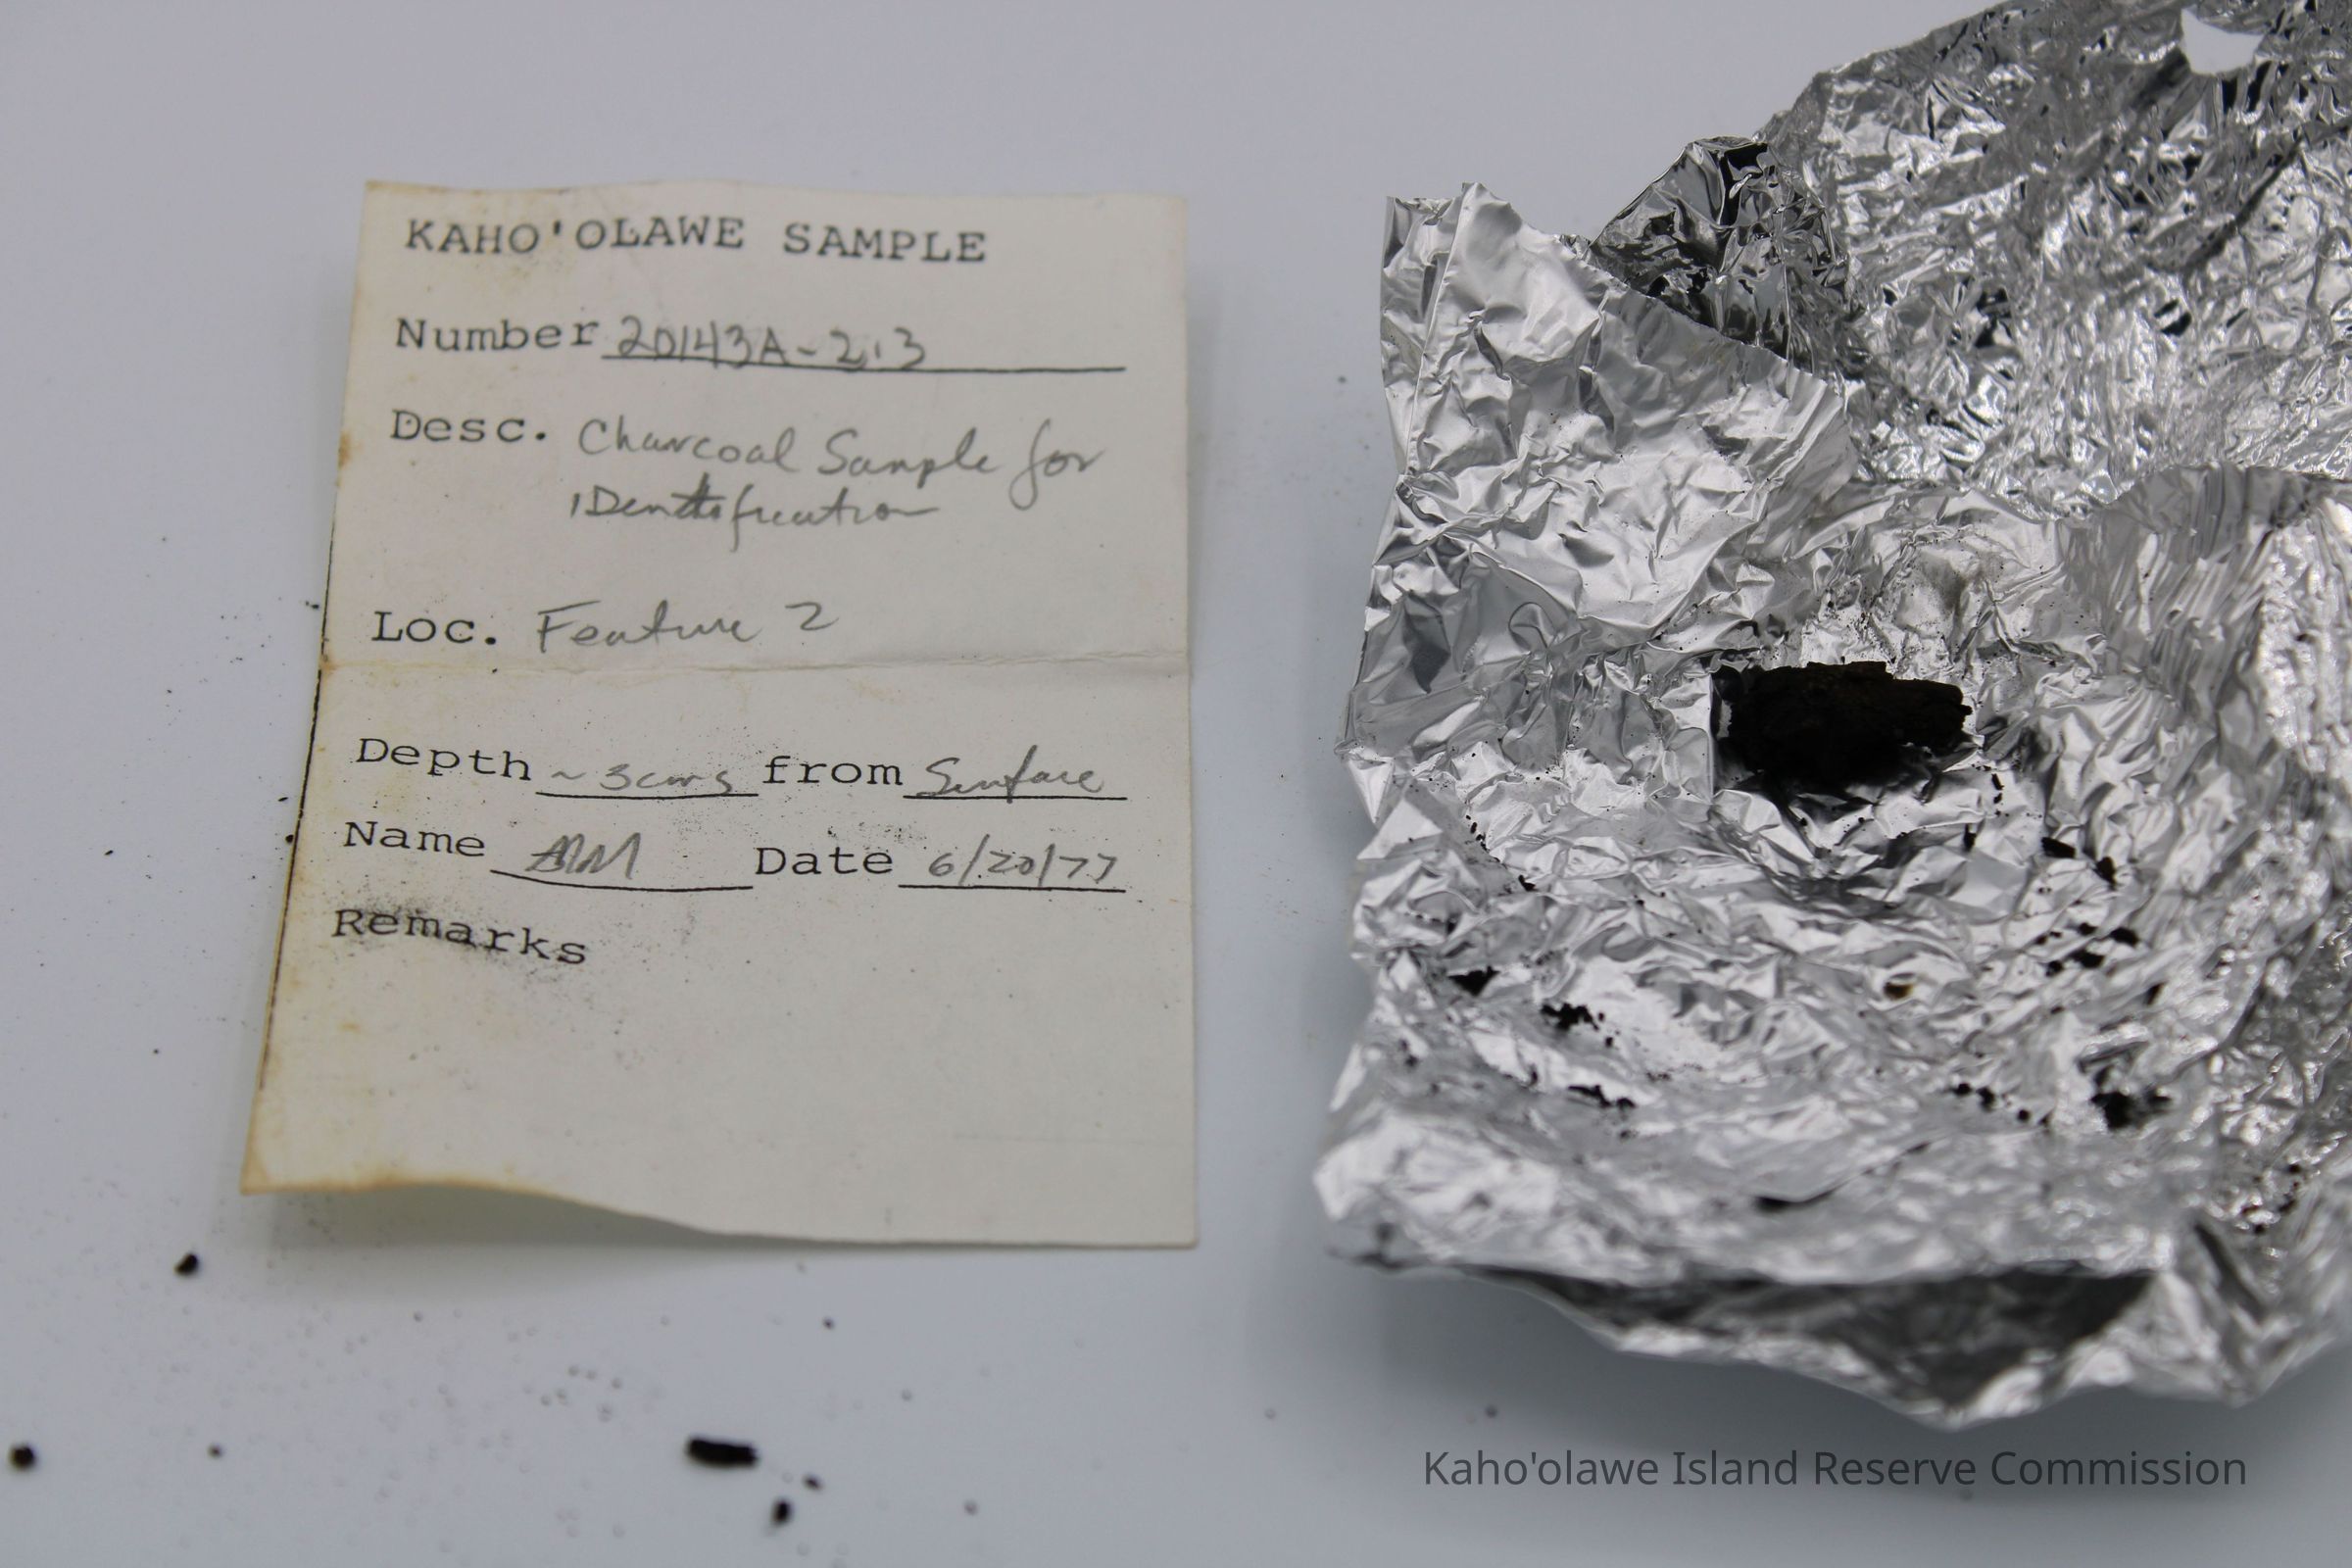 KAHO'OLAWE SAMPLE
Number 20143A-2.3
Desc. Charcoal Sample for
IDentification
Loc. Feature 2
Depth ~3cms from Surface
Name Date 6/20/77
Remarks
Kaho'olawe Island Reserve Commission